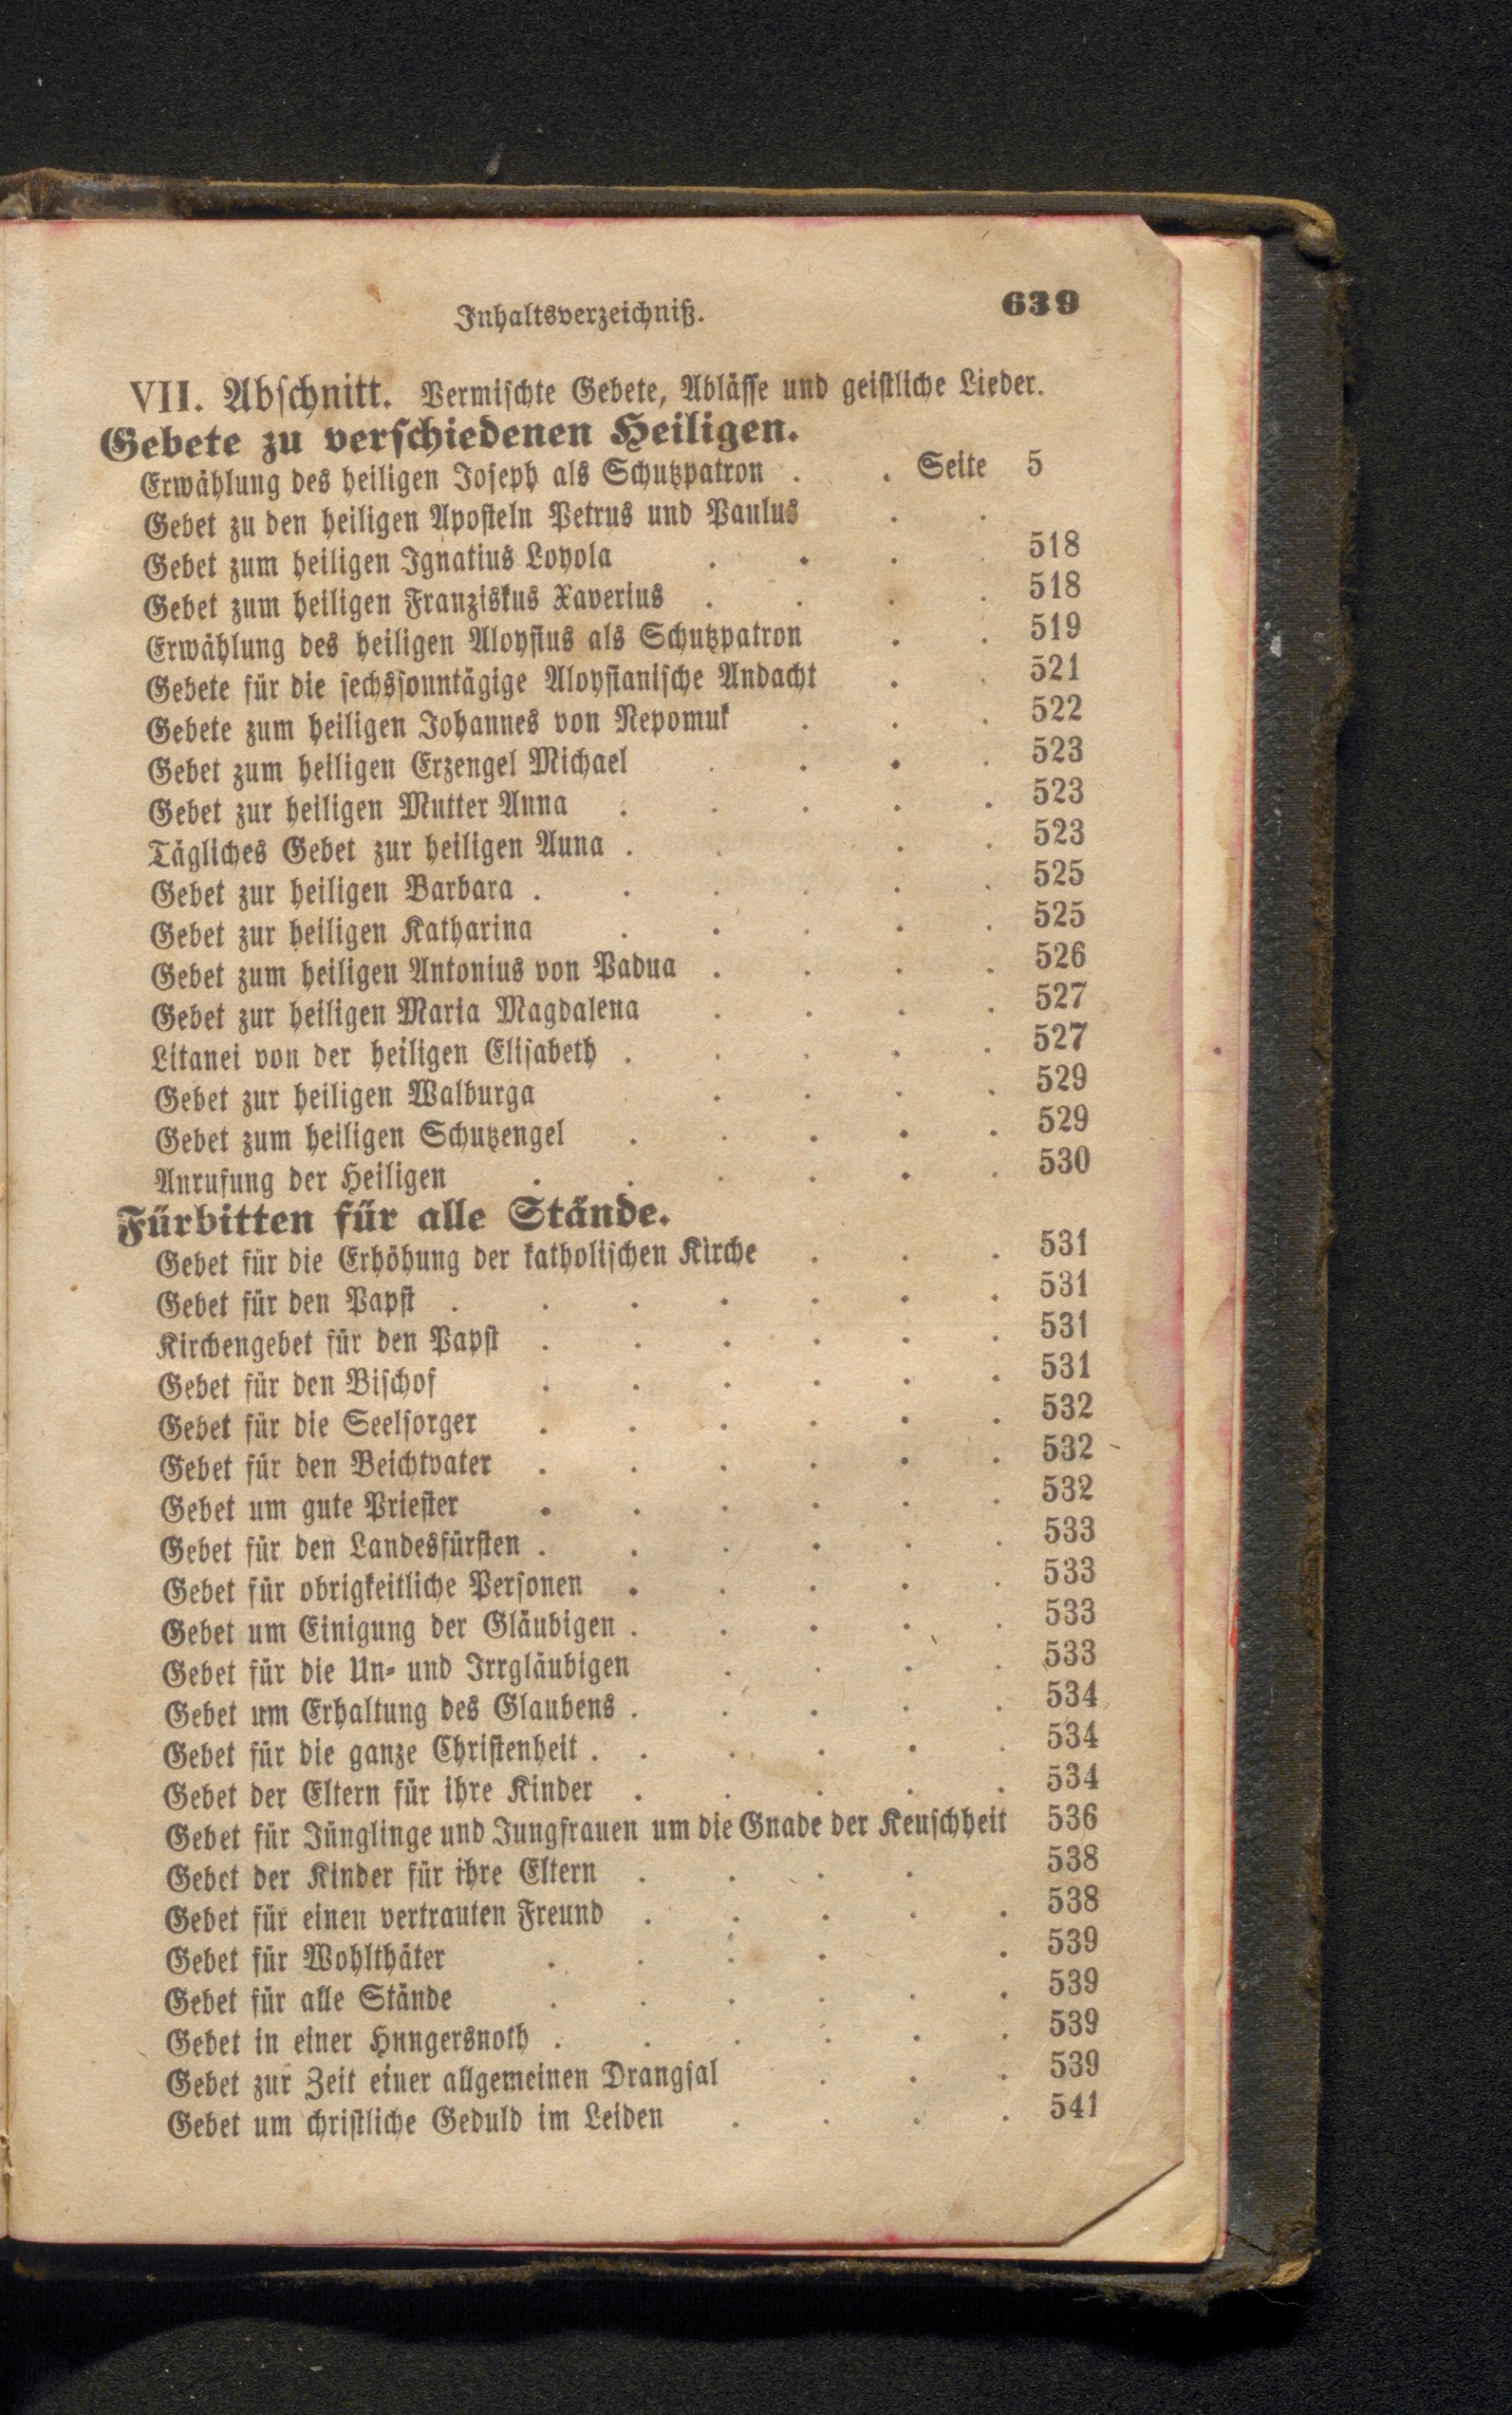 Inhaltsverzeichniß. 639
VII. Abschnitt. Vermischte Gebete, Ablässe und geistliche Lieder.
Gebete zu verschiedenen Heiligen.
Erwählung des heiligen Joseph als Schutzpatron . . Seite 5
Gebet zu den heiligen Aposteln Petrus und Paulus . .
Gebet zum heiligen Ignatius Loyola . . . . 518
Gebet zum heiligen Franziskus Xaverius . . . . 518
Erwählung des heiligen Aloysius als Schutzpatron . . 519
Gebete für die sechssonntägige Aloysianische Andacht . . 521
Gebete zum heiligen Johannes von Nepomuk . . . 522
Gebet zum heiligen Erzengel Michael . . . . 523
Gebet zur heiligen Mutter Anna . . . . . 523
Tägliches Gebet zur heiligen Auna . . . . 523
Gebet zur heiligen Barbara . . . . . . 525
Gebet zur heiligen Katharina . . . . . 525
Gebet zum heiligen Antonius von Padua . . . . 526
Gebet zur heiligen Maria Magdalena . . . . 527
Litanei von der heiligen Elisabeth . . . . . 527
Gebet zur heiligen Walburga . . . . 529
Gebet zum heiligen Schutzengel . . . . . 529
Anrufung der Heiligen . . . . . . 530
Fürbitten für alle Stände.
Gebet für die Erhöhung der katholischen Kirche . . . 531
Gebet für den Papst . . . . . . . 531
Kirchengebet für den Papst . . . . . . 531
Gebet für den Bischof . . . . . . 531
Gebet für die Seelsorger . . . . . . 532
Gebet für den Beichtvater . . . . . . 532
Gebet um gute Priester . . . . . . 532
Gebet für den Landesfürsten . . . . . . 533
Gebet für obrigkeitliche Personen . . . . . 533
Gebet um Einigung der Gläubigen . . . . . 533
Gebet für die Un- und Irrgläubigen . . . . 533
Gebet um Erhaltung des Glaubens . . . . . 534
Gebet für die ganze Christenheit . . . . . . 534
Gebet der Eltern für ihre Kinder . . . . . 534
Gebet für Jünglinge und Jungfrauen um die Gnade der Keuschheit 536
Gebet der Kinder für ihre Eltern . . . . 538
Gebet für einen vertrauten Freund . . . . . 538
Gebet für Wohlthäter . . . . . 539
Gebet für alle Stände . . . . . . 539
Gebet in einer Hnngersnoth . . . . . . 539
Gebet zur Zeit einer allgemeinen Drangsal . . . 539
Gebet um christliche Geduld im Leiden . . . . 541